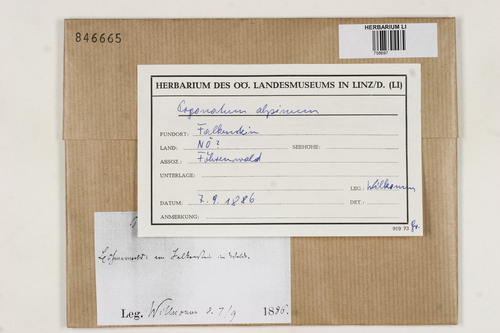 846665
HERBARIUM LI
HERBARIUM DES OÖ. LANDESMUSEUMS IN LINZ/D. (LI)
Pogonatum alpinum
FUNDORT: Falkenstein
LAND: NÖ? SEEHÖHE:
ASSOZ.: Föhrenwald
UNTERLAGE:
LEG.: Willkomm
DATUM: 7.9.1886 DET.:
ANMERKUNG:
909 73
Falkenstein
Leg. Willkomm d. 7/9 1886.